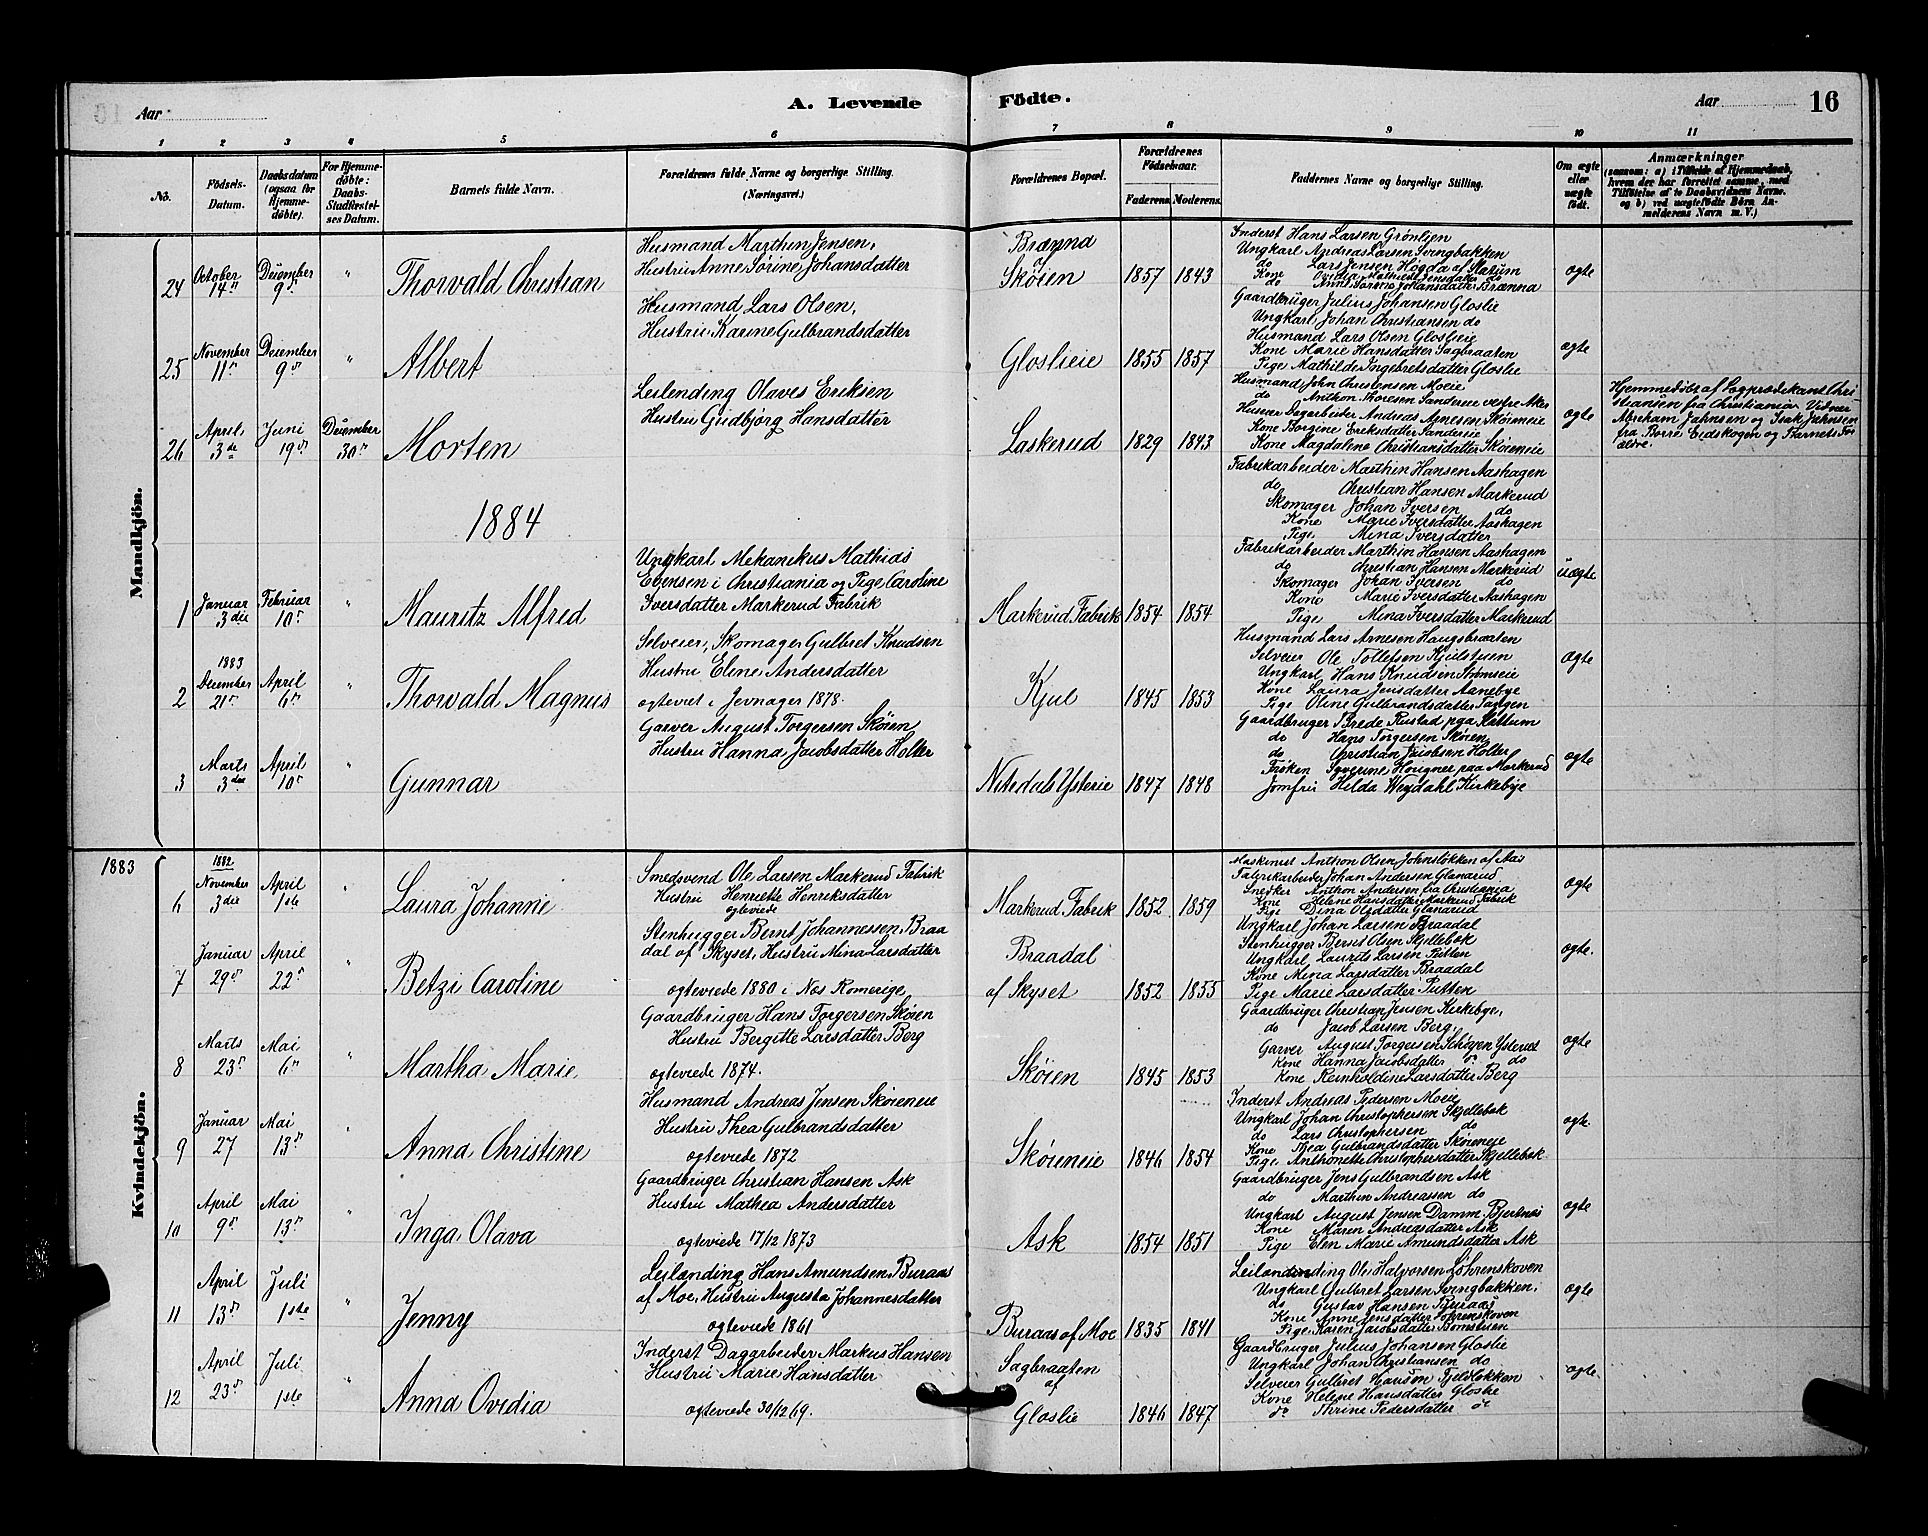 Aar
A. Levende
Födte.
Aar
16
1 2 3 4 5 6 7 8 9 10 11
No.
Födsels-Datum.
Daabsdatum (ogsaa for Hjemmedöbte).
For Hjemmedöbte: Daabs-Stadfæstelses Datum.
Barnets fulde Navn.
Forældrenes fulde Navne og borgerlige Stilling. (Næringsvei.)
Forældrenes Bopæl.
Forældrenes Födselsaar.
Faderens. Moderens.
Faddernes Navne og borgerlige Stilling.
Om ægte eller uægte födt.
Anmærkninger
(saasom: a) i Tilfælde af Hjemmedaab, hvem der har forrettet samme, med Tilföielse af to Daabsvidners Navne, og b) ved uægtefödte Börn Anmelderens Navn m. V.)
Mandkjön.
24 October 14de December 9de " Thorvald Christian
Husmand Marthin Jensen,
Hustru Anne Sörine Johansdatter
Brænna
af
Skóien 1857 1843
Inderst Hans Larsen Grönlien
Ungkarl Andreas Larsen Svingbakken
do Lars Jensen Högda af Marum
Kone Ovidia Mathilde Jensdatter do
do Anne Sörine Johansdatter Brænna
ægte
25 November 11te December 9de " Albert
Husmand Lars Olsen,
Hustru Karine Gulbrandsdatter
Gloslieie 1855 1857
Gaardbruger Julius Johansen Gloslie
Ungkarl Johan Christiansen do
Husmand Lars Olsen Gloslieie
Kone Marie Hansdatter Sagbraaten
Pige Mathilde Ingebretsdatter Gloslie
ægte
26 April 3de Juni 19de December 30te Morten
Leilending Olaves Eriksen
Hustru Gudbjörg Hansdatter
Laskerud 1829 1843
Husmand John Christensen Moeie
do Anthon Thoresen Sandereie vestre Aker
Huseier Dagarbeider Andreas Arnesen Skóieneie
Kone Borgine Eriksdatter Sandereie
Kone Magdalene Christiansdatter Skóieneie
ægte
Hjemmedöbt af Lægprædikant Christiansen fra Christiania. Vidner Abraham Jahnsen og Isak Jahnsen fra Borre Eidskogen og Barnets Forældre.
1884
Fabrikarbeider Marthin Hansen Aashagen
do Christian Hansen Markerud
Skomager Johan Iversen do
Kone Marie Iversdatter Aashagen
Pige Mina Iversdatter
1 Januar 3die Februar 10de " Mauritz Alfred
Ungkarl Mekanikus Mathias
Evensen i Christiania og Pige Caroline
Iversdatter Markerud Fabrik
Markerud Fabrik 1854 1854
Fabrikarbeider Marthin Hansen Aashagen
do Christian Hansen Markerud
Skomager Johan Iversen do
Kone Marie Iversdatter Aashagen
Pige Mina Iversdatter Markerud
uægte
2 1883 December 21de April 6te " Thorvald Magnus
Selveier, Skomager Gulbret Knudsen
Hustru Eline Andersdatter
ægteviet i Jevnager 1878.
Kjul 1845 1853
Husmand Lars Arnesen Haugsbraaten
Selveier Ole Tollefsen Kjulstuen
Ungkarl Hans Knudsen Strömseie
Kone Laura Jensdatter Aanebye
Pige Oline Gulbrandsdatter Tangen
ægte
3 Marts 3die April 10de " Gunnar
Garver August Torgersen Skóien
Hustru Hanna Jacobsdatter Holter
Nitedals Ysterie 1847 1848
Gaardbruger Brede Rustad paa Rættum
do Hans Torgersen Skóien
do Christian Jacobsen Holter
Fröken Severine Hougner paa Markerud
Jomfru Hilda Weydahl Kirkebye
ægte
1883
Kvindekjön.
6 1882 November 3die April 1ste " Laura Johanne
Smedsvend Ole Larsen Markerud Fabrik
Hustru Henriette Henriksdatter
ægteviede
Markerud Fabrik 1852 1859
Maskinist Anthon Olsen Johnslökken af Aas
Fabrikarbeider Johan Andersen Glanarud
Snedker Anthon Andersen fra Christiania
Kone Helene Hansdatter Markerud Fabrik
Pige Dina Olsdatter Glanarud
ægte
7 Januar 29de April 22de " Betzi Caroline
Stenhugger Bernt Johannessen Braa
dal af Skyset, Hustru Mina Larsdatter
ægteviede 1880 i Næs Romerige,
Braadal
af Skyset 1852 1855
Ungkarl Johan Larsen Braadal
Stenhugger Bernt Olsen Skjellebæk
Ungkarl Laurits Larsen Putten
Kone Mina Larsdatter Braadal
Pige Marie Larsdatter Putten
ægte.
8 Marts 23de Mai 6te " Martha Marie
Gaardbruger Hans Torgersen Skóien
Hustru Bergitte Larsdatter Berg
ægteviede 1874.
Skóien 1845 1853
Gaardbruger Christian Jensen Kirkebye,
do Jacob Larsen Berg,
Garver August Torgersen Skóien Ysteriet
Kone Hanna Jacobsdatter do do
Kone Reinholdine Larsdatter Berg
ægte
9 Januar 27 Mai 13de " Anna Christine
Husmand Andreas Jensen Skóieneie
Hustru Thea Gulbrandsdatter
ægteviede 1872
Skóieneie 1846 1854
Inderst Andreas Pedersen Moeie
Ungkarl Johan Christophersen Skjellebæk
do Lars Christophersen do
Kone Thea Gulbrandsdatter Skóieneie
Pige Anthonette Christophersdatter Skjellebæk
ægte.
10 April 9de Mai 13de " Inga Olava
Gaardbruger Christian Hansen Ask
Hustru Mathea Andersdatter
ægteviede 17/12 1873
Ask 1854 1851
Gaardbruger Jens Gulbrandsen Ask
do Marthin Andreassen do
Ungkarl August Jensen Damm, Bjertnæs
Kone Maren Andreasdatter Ask
Pige Elen Marie Amundsdatter Ask
ægte
11 April 13de Juli 1ste " Jenny
Leilænding Hans Amundsen Buraas
af Moe, Hustru Augusta Johannesdatter
ægteviede 1861
Buraas af Moe 1835 1841
Leilænding Ole Halvorsen Löhrenskoven
Ungkarl Gulbret Larsen Svingbakken,
do Gustav Hansen Buraas
Kone Anne Jensdatter Löhrenskoven
Pige Karen Jacobsdatter Bomstuen
ægte
12 April 23de Juli 1ste " Anna Ovidia
Inderst Dagarbeider Markus Hansen
Hustru Marie Hansdatter
ægteviede 30/12 69.
Sagbraaten
af
Gloslie 1846 1847
Gaardbruger Julius Johansen Gloslie
Ungkarl Johan Christiansen do
Selveier Gulbret Hansen Fjeldlökken
Kone Helene Hansdatter Gloslie
do Thrine Pedersdatter do
ægte.